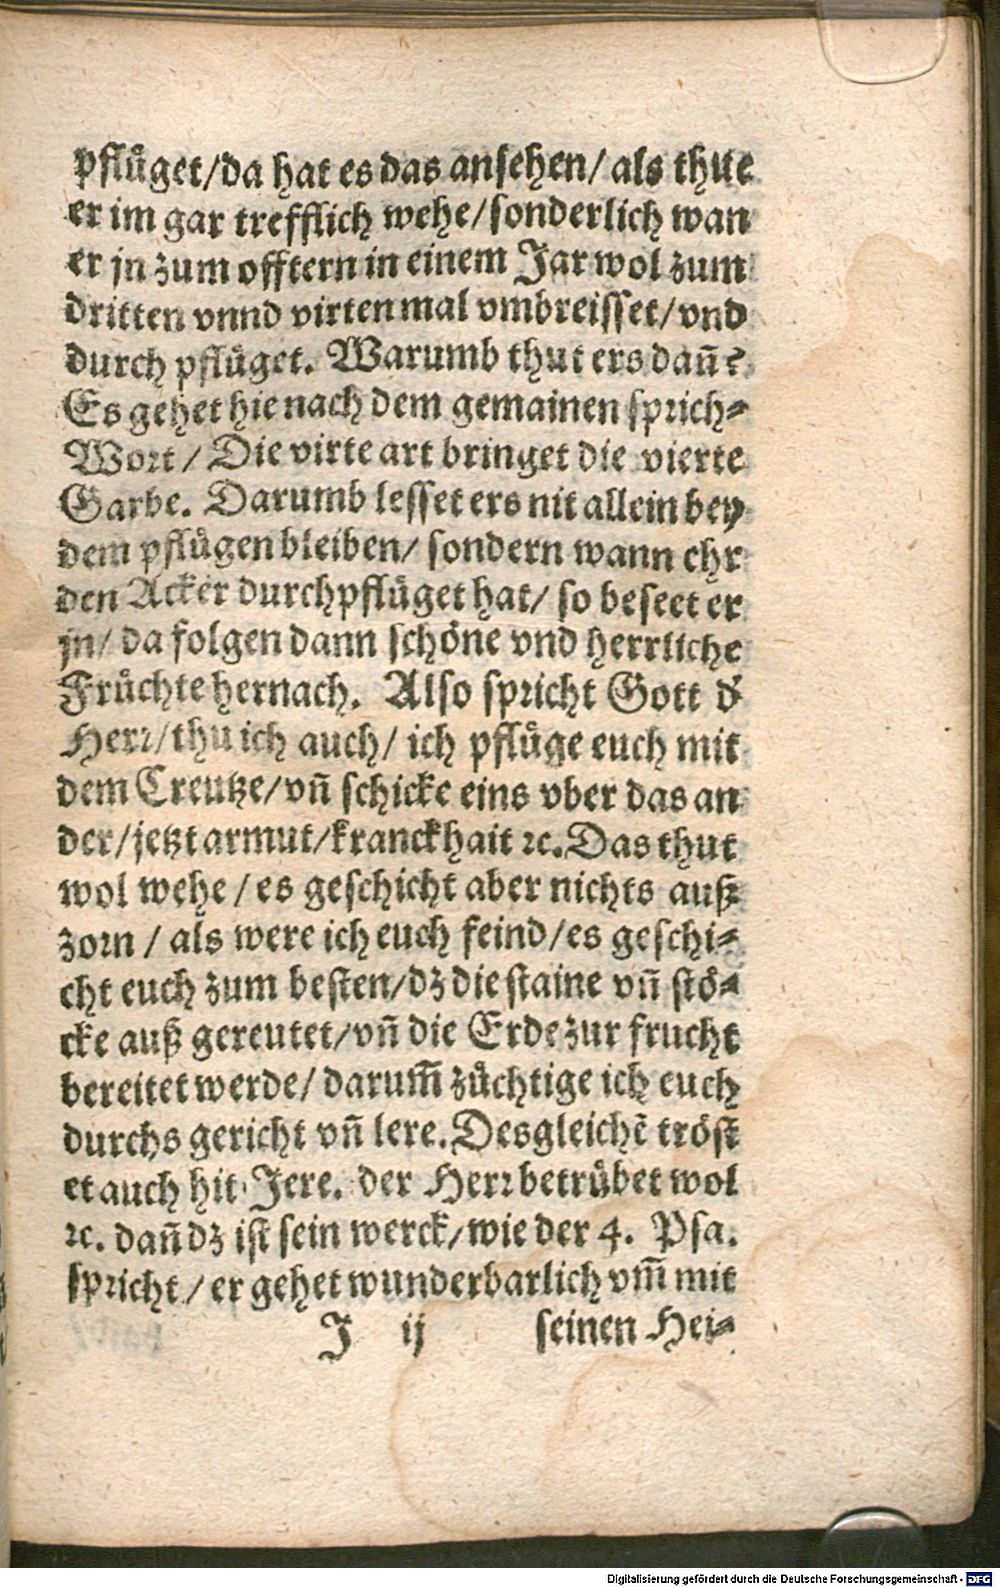 pflüget/da hat es das ansehen/ als thue
er im gar trefflich wehe/sonderlich wan
er jn zum offtern in einem Jar wol zum
dritten vnnd virten mal vmbreisset/vnd
durch pflüget. Warumb thut ers dañ?
Es gehet hie nach dem gemainen sprich-
Wort / Die virte art bringet die vierte
Garbe. Darumb lesset ers nit allein bey
dem pflügen bleiben/ sondern wann ehr
den Acker durchpflüget hat/ so beseet er
jn/ da folgen dann schöne vnd herrliche
Früchte hernach. Also spricht Gott d'
Herr/thu ich auch/ ich pflüge euch mit
dem Creutze/vñ schicke eins vber das an
der/jetzt armut/kranckhait ꝛc. Das thut
wol wehe / es geschicht aber nichts auß
zorn / als were ich euch feind/es geschi-
cht euch zum besten/dz die staine vñ stö-
cke auß gereutet/vñ die Erde zur frucht
bereitet werde/ darum̃ züchtige ich euch
durchs gericht vñ lere. Desgleichẽ tröst
et auch hit Jere. der Herr betrübet wol
ꝛc. dañ dz ist sein werck/wie der 4. Psa.
spricht / er gehet wunderbarlich vm̃ mit
J ij seinen Hei-
Digitalisierung gefördert durch die Deutsche Forschungsgemeinschaft - DFG